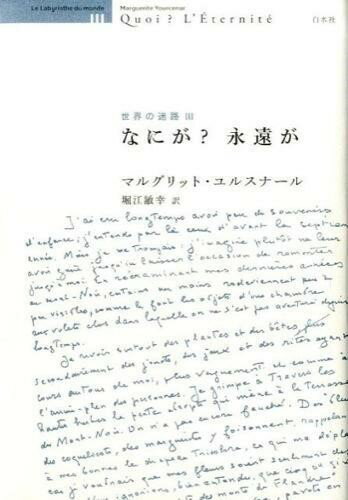 Le Labyrinthe du monde
III
Marguerite Yourcenar
Quoi? L'Éternité
白水社
世界の迷路 III
なにが? 永遠が
マルグリット・ユルスナール
堀江敏幸 訳
J'ai cru longtemps avoir peu de souvenirs
d'enfance; j'entends par là ceux d'avant la septième
année. Mais je me trompais: j'imagine plutôt ne leur
avoir guère jusqu'ici laissé l'occasion de remonter
jusqu'à moi. En réexaminant mes dernières années
au Mont-Noir, certains au moins redeviennent peu à
peu visibles, comme le font les objets d'une chambre
aux volets clos dans laquelle on ne s'est pas aventuré depuis
longtemps.
Je revois surtout des plantes et des bêtes, plus
secondairement des jouets, des jeux et des rites ayant
cours autour de moi, plus vaguement et comme à
l'arrière-plan des personnes. Je grimpe à travers les
hautes herbes la pente abrupte qui mène à la terrasse
du Mont-Noir. On n'a pas encore fauché. Des
coquelicots, des marguerites y foisonnent, rappelant
à mes bonnes le drapeau tricolore, ce qui me déplaît
car je voudrais que mes fleurs soient seulement des